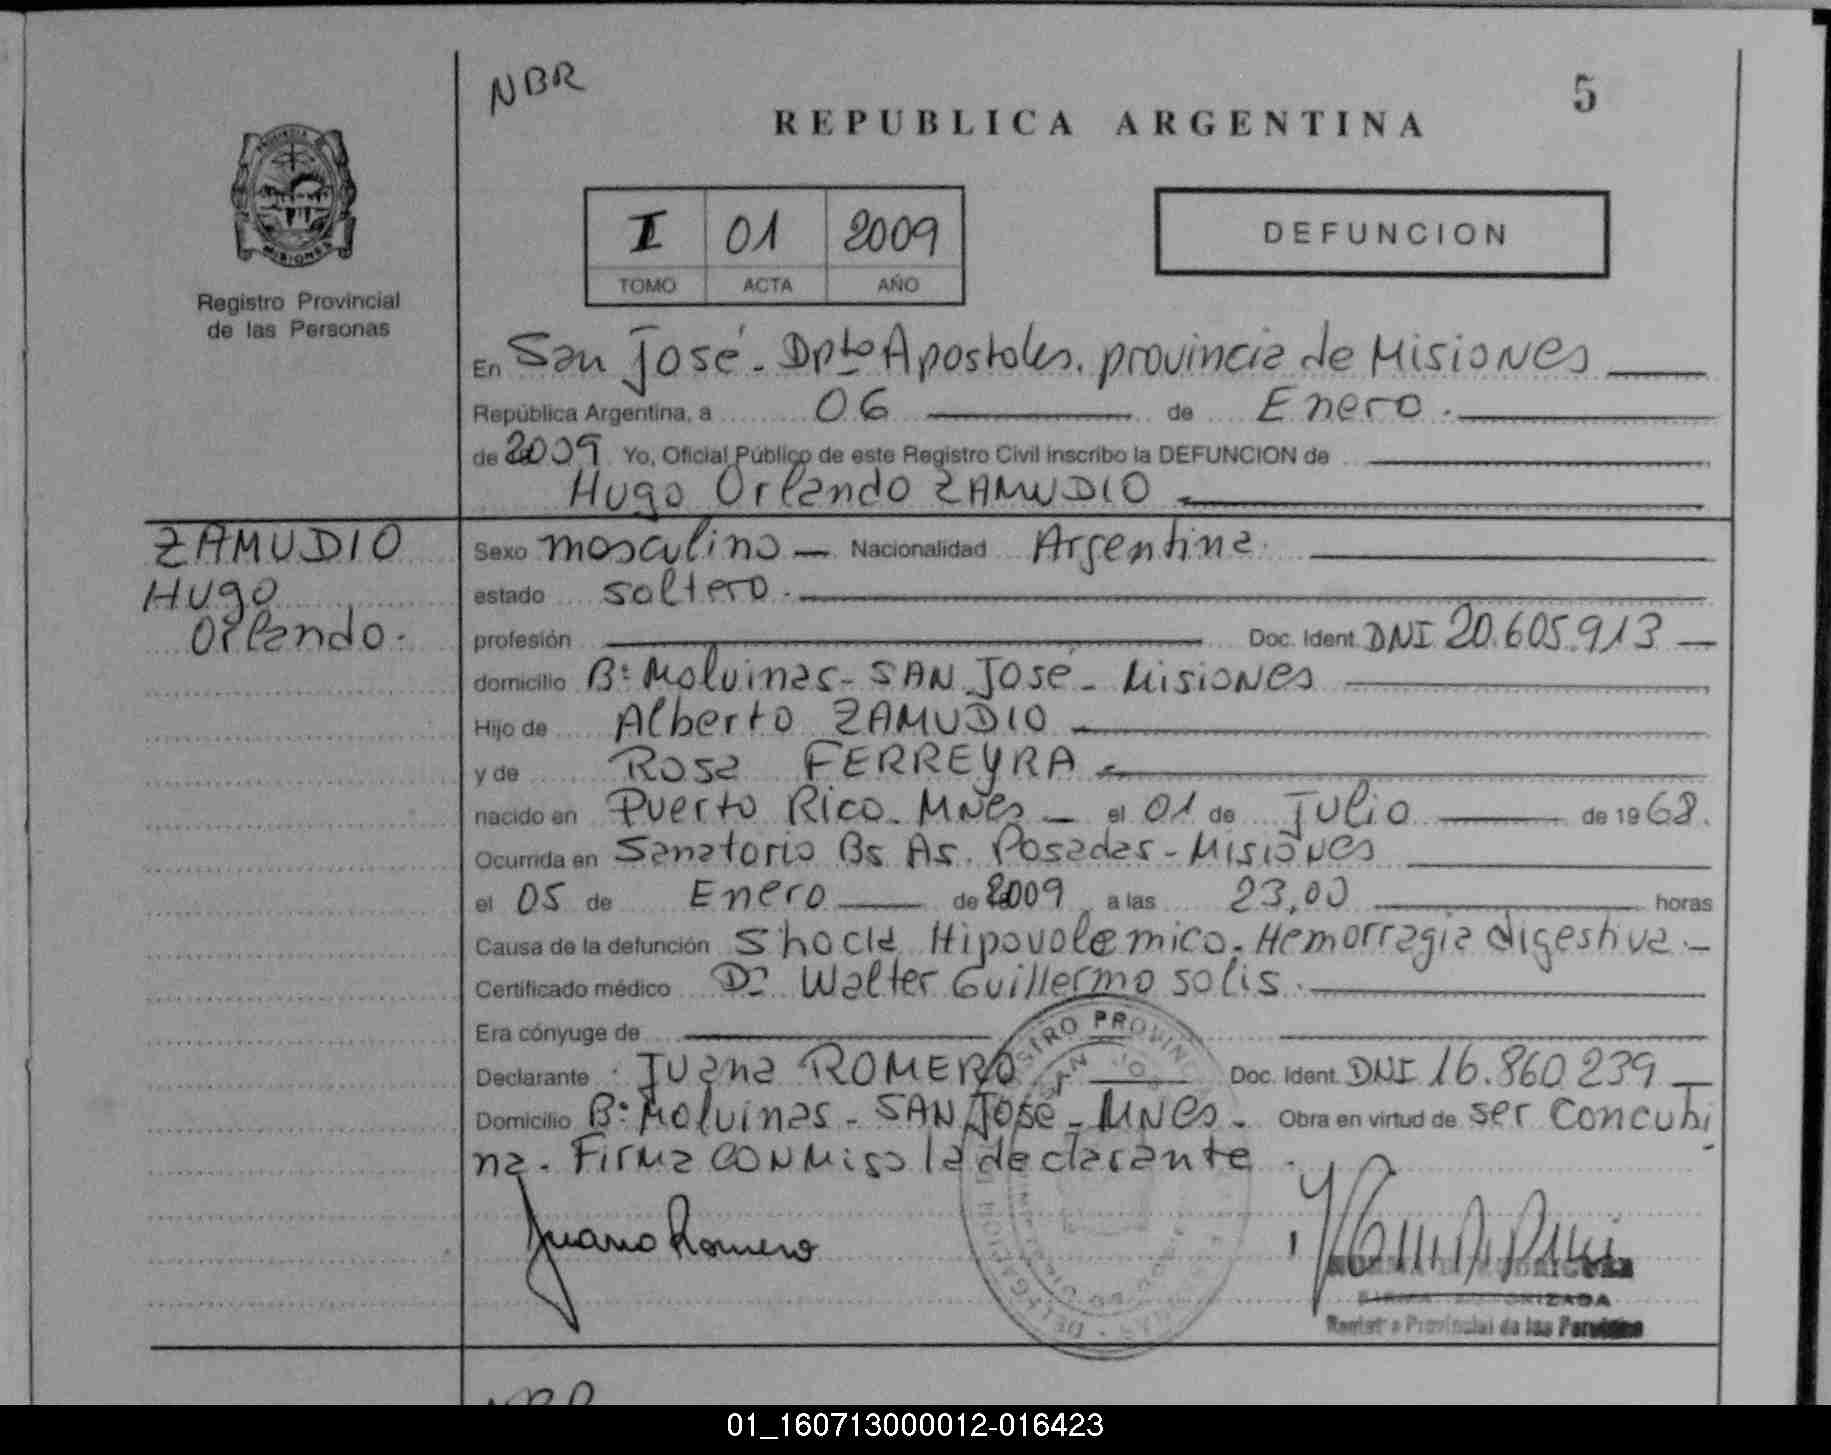 NBR
5
REPUBLICA ARGENTINA
MISIONES
Registro Provincial
de las Personas
I 01 2009
TOMO ACTA AÑO
DEFUNCION
En San José - Dpto Apostoles, provincia de Misiones
República Argentina, a 06 de Enero.
de 2009 Yo, Oficial Público de este Registro Civil inscribo la DEFUNCION de
Hugo Orlando ZAMUDIO
ZAMUDIO
Hugo
Orlando.
Sexo masculino Nacionalidad Argentina.
estado soltero.
profesión Doc. Ident. DNI 20.605.913
domicilio Bº Malvinas - SAN José - Misiones
Hijo de Alberto ZAMUDIO
y de Rosa FERREYRA
nacido en Puerto Rico - MNes el 01 de Julio de 1968.
Ocurrida en Sanatorio Bs As. Posadas - Misiones
el 05 de Enero de 2009 a las 23,00 horas
Causa de la defunción Shock Hipovolemico. Hemorragia digestiva.
Certificado médico Dr Walter Guillermo Solis.
Era cónyuge de
Declarante Juana ROMERO Doc. Ident. DNI 16.860.239
Domicilio Bº Malvinas - SAN José - MNes. Obra en virtud de ser concubi
na. Firma conmigo la declarante.
Juana Romero
FIRMA AUTORIZADA
Registro Provincial de las Personas
01_160713000012-016423